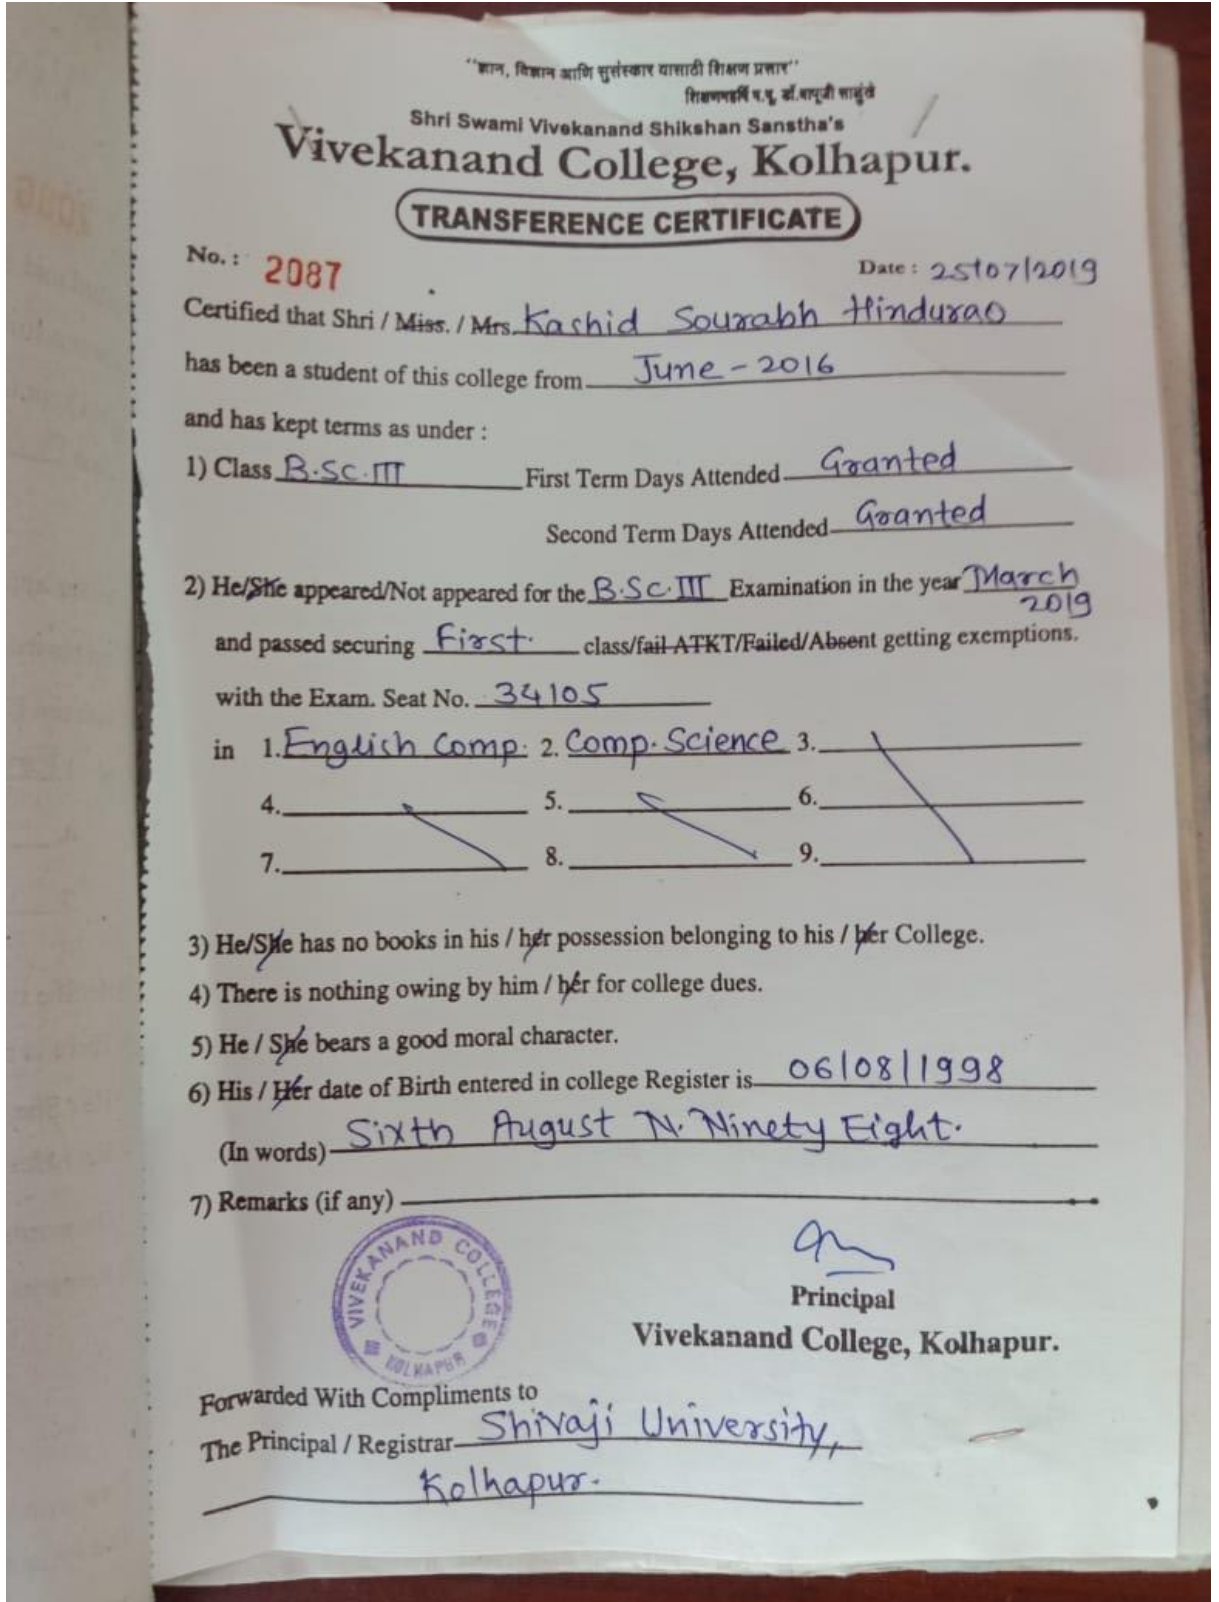 "ज्ञान, विज्ञान आणि सुसंस्कार यासाठी शिक्षण प्रसार"
शिक्षणमहर्षि प.पू. डॉ.बापूजी साळुंखे
Shri Swami Vivekanand Shikshan Sanstha's
Vivekanand College, Kolhapur.
TRANSFERENCE CERTIFICATE
No. : 2087 Date : 25/07/2019
Certified that Shri / Miss. / Mrs. Kashid Sourabh Hindurao
has been a student of this college from June - 2016
and has kept terms as under :
1) Class B.Sc.III First Term Days Attended Granted
Second Term Days Attended Granted
2) He/She appeared/Not appeared for the B.Sc.III Examination in the year March
2019
and passed securing First. class/fail ATKT/Failed/Absent getting exemptions.
with the Exam. Seat No. 34105
in 1. English Comp. 2. Comp. Science 3.
4. 5. 6.
7. 8. 9.
3) He/She has no books in his / her possession belonging to his / her College.
4) There is nothing owing by him / her for college dues.
5) He / She bears a good moral character.
6) His / Her date of Birth entered in college Register is 06/08/1998
(In words) Sixth August N. Ninety Eight.
7) Remarks (if any)
VIVEKANAND COLLEGE
KOLHAPUR
Principal
Vivekanand College, Kolhapur.
Forwarded With Compliments to
The Principal / Registrar Shivaji University,
Kolhapur.